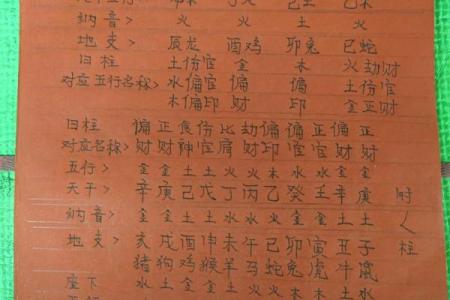 纳音> 火 火 土 火
地支> 辰龙 酉鸡 卯兔 巳蛇
日柱 土伤官 金 木 火劫财
对应五行名称> 水偏官 偏 偏 土伤官
木偏印 财 印 金正财
日柱 偏 正 食 伤 比 劫 偏 偏 正 偏 正
对应名称> 财 财 神 官 肩 财 印 官 官 财 财
五行> 金 金 土 土 火 火 木 水 水 金 金
天干> 辛 庚 己 戊 丁 丙 乙 癸 壬 辛 庚
纳音> 金 金 土 土 水 水 火 金 金 土 土
地支> 亥 戌 酉 申 未 午 巳 卯 寅 丑 子
猪 狗 鸡 猴 羊 马 蛇 兔 虎 牛 鼠
座下
时柱